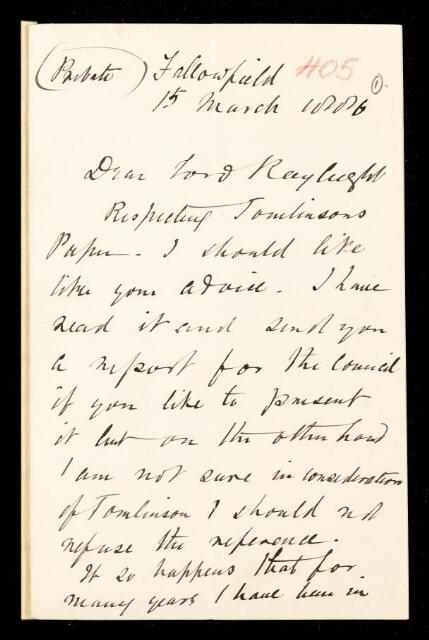 (Private) Fallowfield 405 (1).
15 March 1886
Dear Lord Rayleigh
Respecting Tomlinsons
Paper - I should like
like your advice. I have
read it and send you
a report for the Council
if you like to present
it but on the other hand
I am not sure in consideration
of Tomlinson I should not
refuse the reference.
It so happens that for
many years I have been in